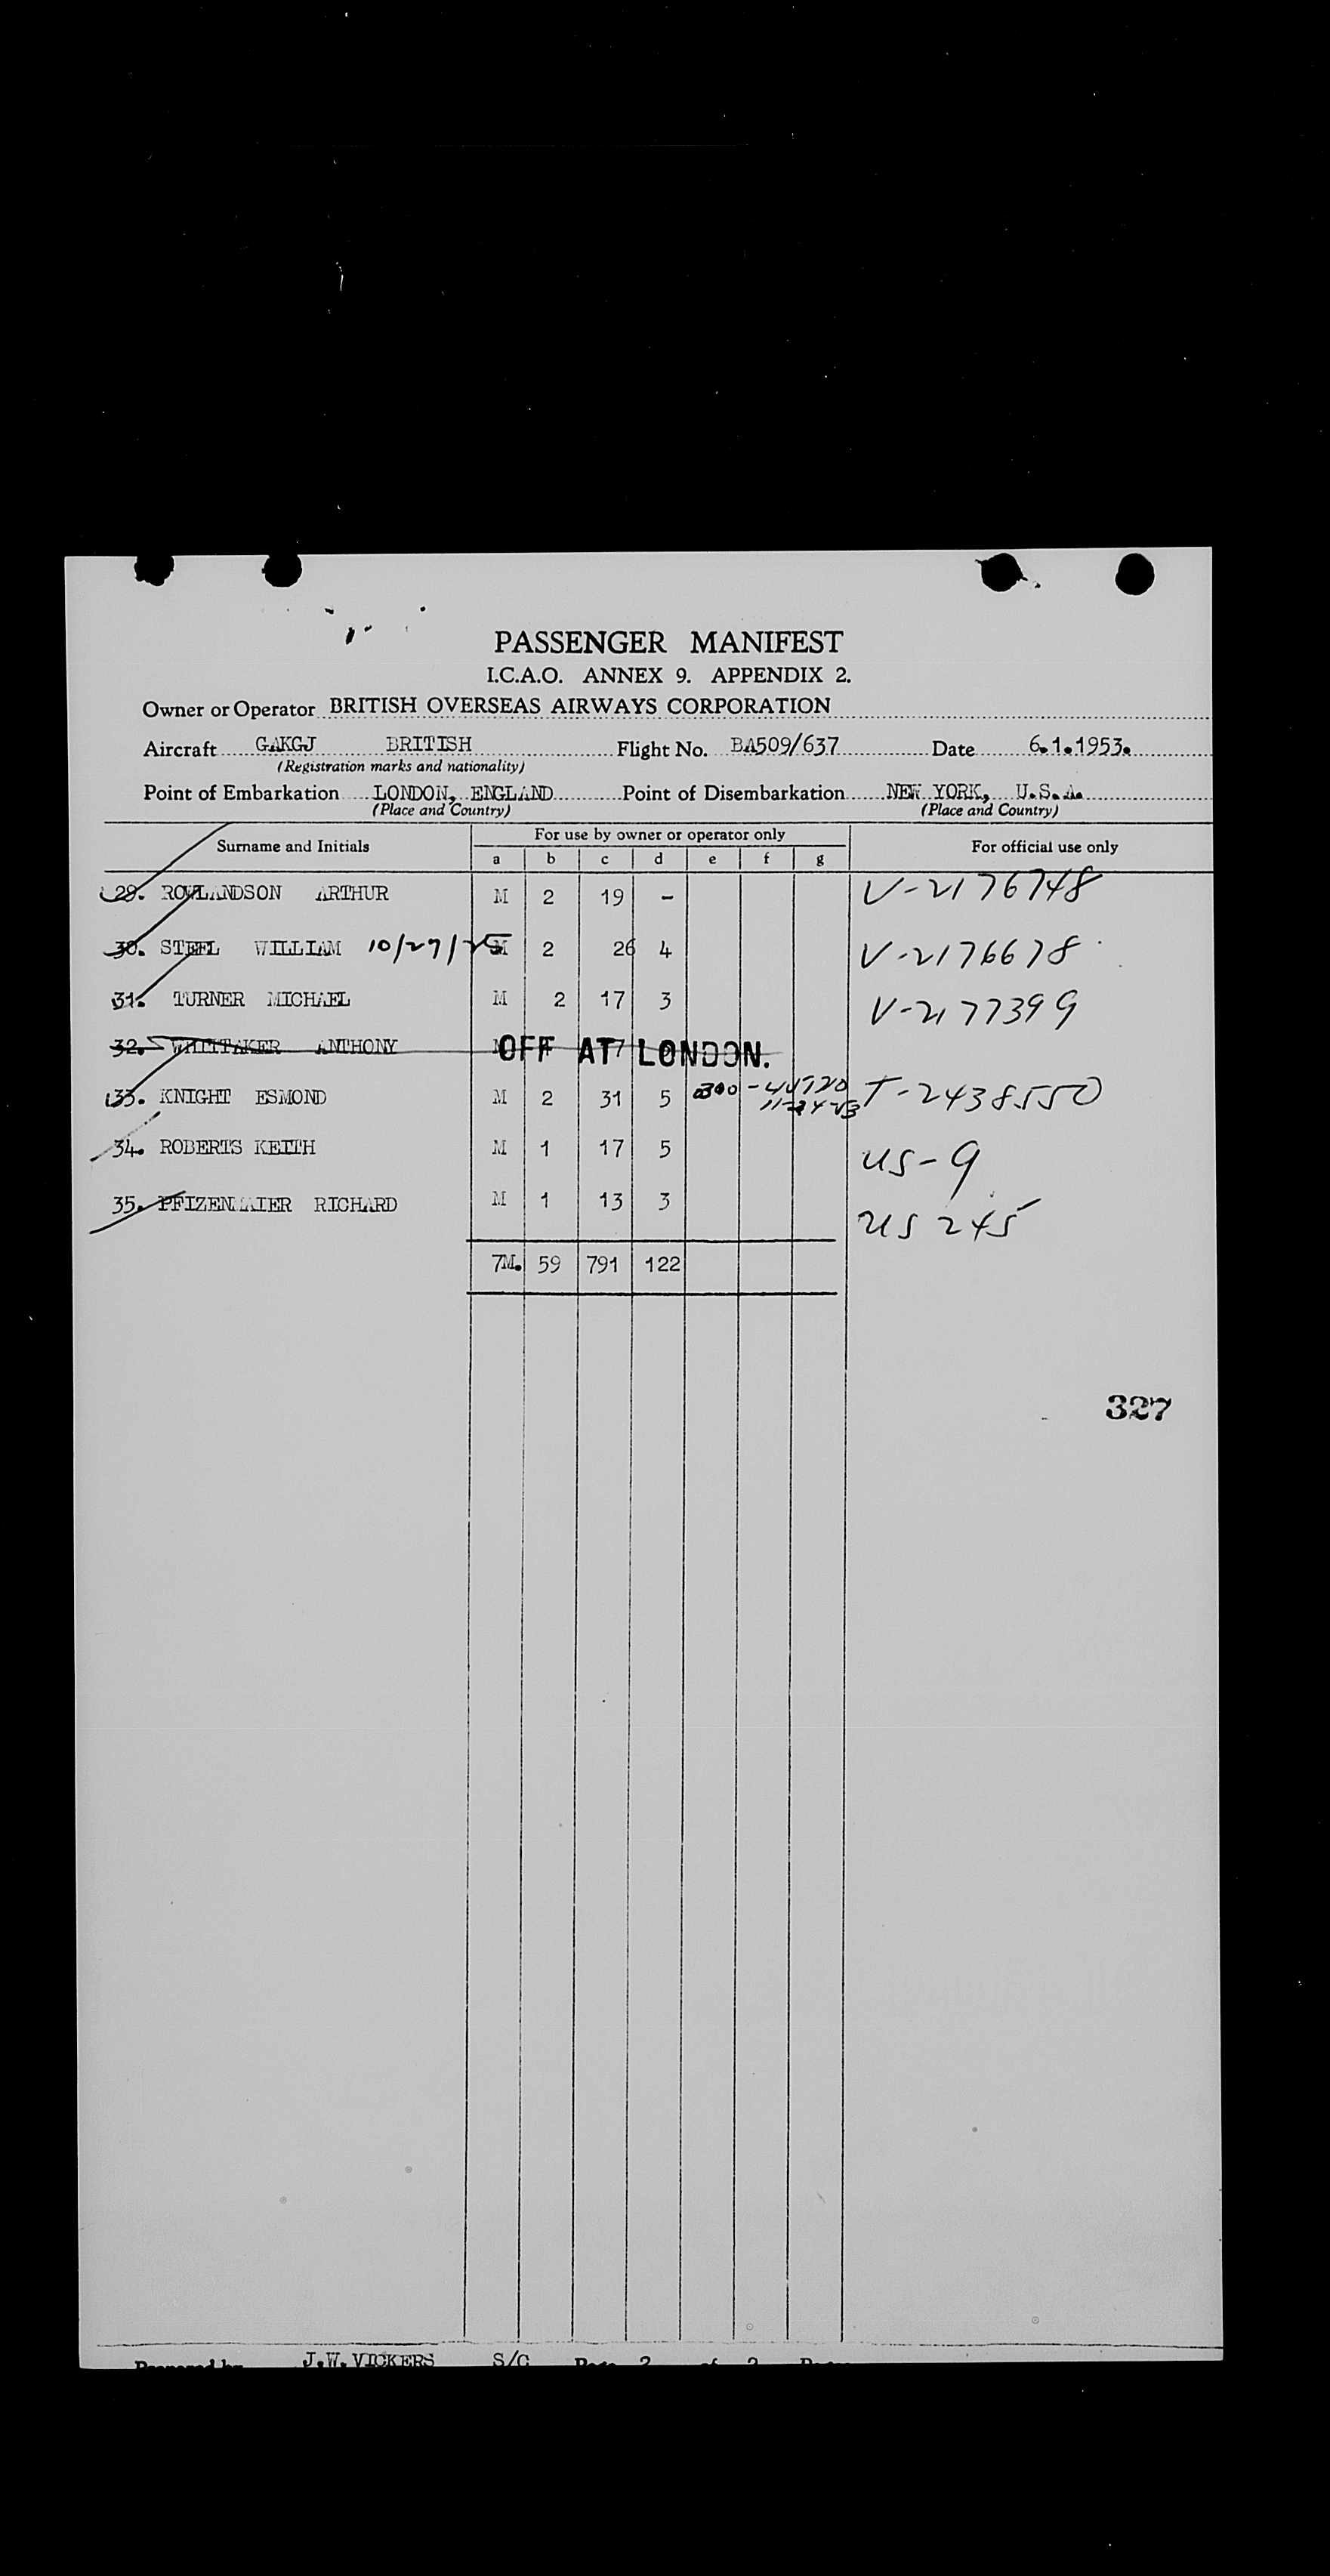 PASSENGER MANIFEST
I.C.A.O. ANNEX 9. APPENDIX 2.
Owner or Operator BRITISH OVERSEAS AIRWAYS CORPORATION
Aircraft GAKGJ BRITISH Flight No. BA509/637 Date 6.1.1953.
(Registration marks and nationality)
Point of Embarkation LONDON, ENGLAND Point of Disembarkation NEW YORK, U.S.A.
(Place and Country) (Place and Country)
Surname and Initials For use by owner or operator only For official use only
a b c d e f g
29. ROWLANDSON ARTHUR M 2 19 - V-2176748
30. STEEL WILLIAM 10/27/25 M 2 26 4 V-2176678
31. TURNER MICHAEL M 2 17 3 V-2177399
32. WHITTAKER ANTHONY OFF AT LONDON.
33. KNIGHT ESMOND M 2 31 5 T-2438550
34. ROBERTS KEITH M 1 17 5 US-9
35. PFIZENMAIER RICHARD M 1 13 3 US 245
7M. 59 791 122
327
Prepared by J.W. VICKERS S/C Page of Pages